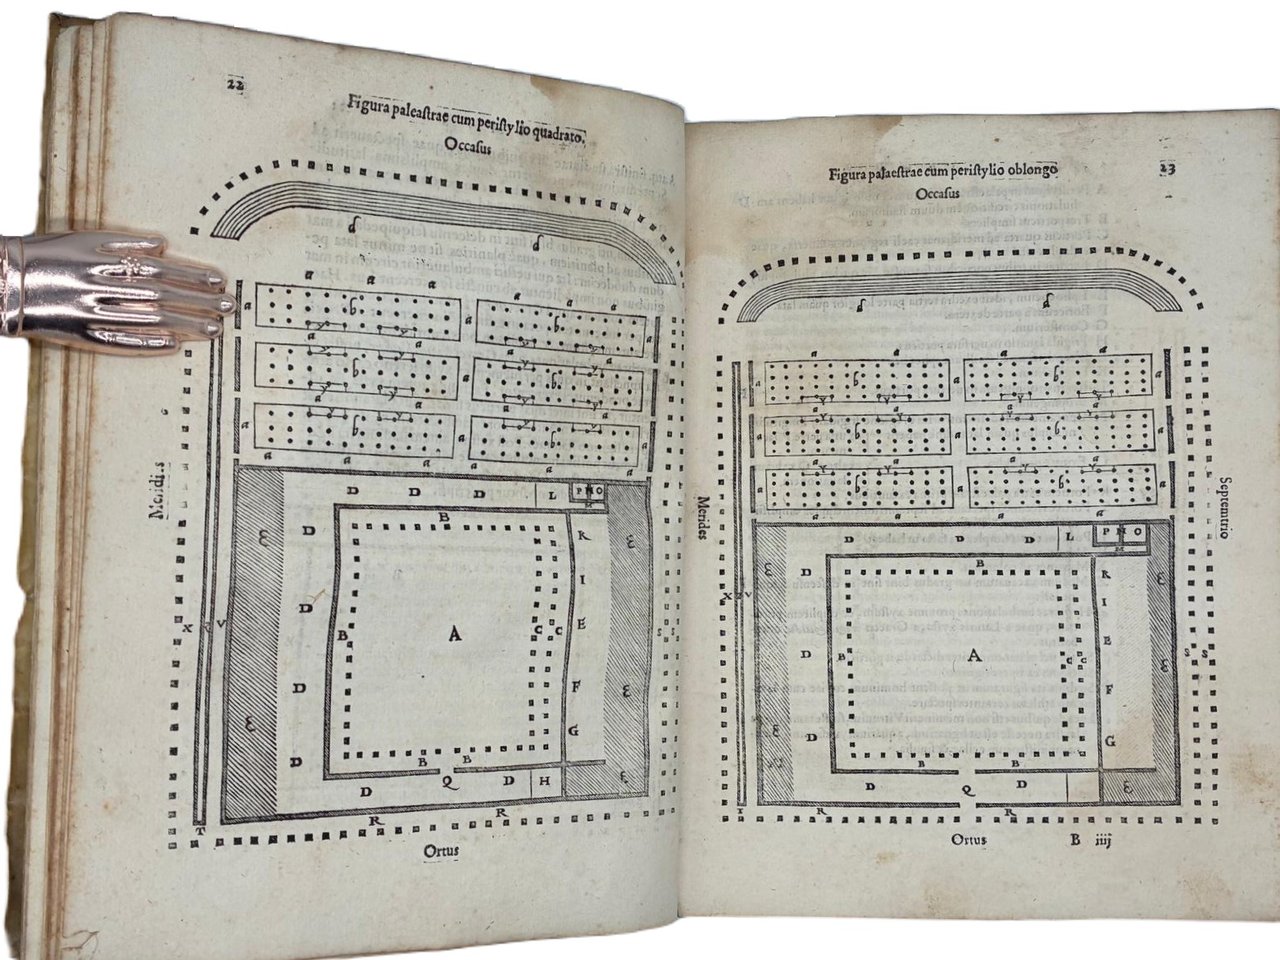 22
Figura paleaſtrae cum periſtylio quadrato.
Occaſus
d d
a a a a a
a b b
a a
a b b a
a a
a b b a
a a a a
D D D L P N O
B
D K
ε ε
I
D
X V B A C C E S S
D F
ε ε
D G
B B
Q D H ε
D
R R
T
Ortus
Meridies
Figura palaeſtrae cum periſtylio oblongo
23
Occaſus
d d
a a a a
a b a b a
a a
b b
a a
b b
a a a a
D D D L P N O
M
B
ε D K ε
I
X V
D B A C C E ε S S
F
ε D G
B B
D Q D ε
R R
I
Ortus
B iiij
Merides
Septentrio